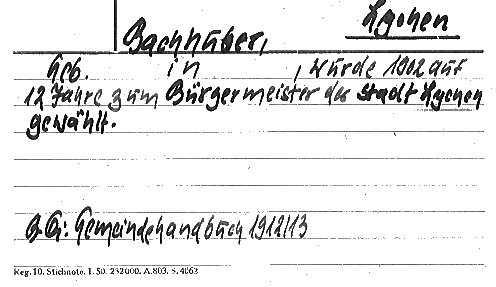 Lychen
Bachhuber,
Geb. in , wurde 1902 auf
12 Jahre zum Bürgermeister der Stadt Lychen
gewählt.
Gemeindehandbuch 1912/13
Reg. 10. Stichnote. 1. 50. 232000. A.803. S. 4063